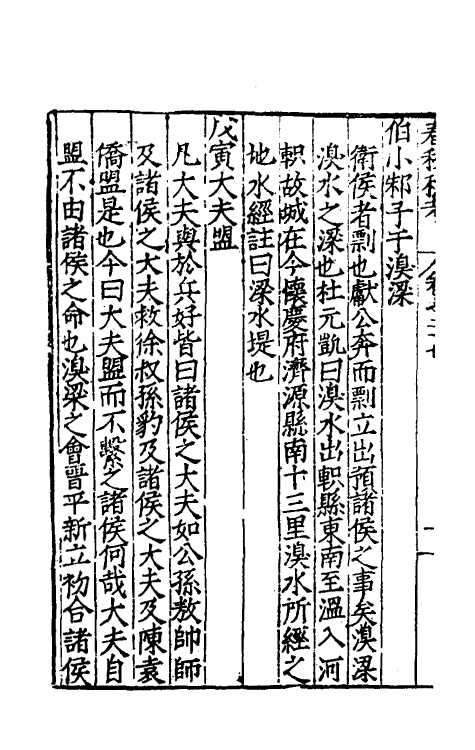 伯小邾子于溴梁
衛侯者剽也獻公奔而剽立出預諸侯之事矣溴梁
溴水之梁也杜元凱曰溴水出軹縣東南至溫入河
軹故城在今懷慶府濟源縣南十三里溴水所經之
地水經註曰梁水堤也
戊寅大夫盟
凡大夫與於兵好皆曰諸侯之大夫如公孫敖帥師
及諸侯之大夫救徐叔孫豹及諸侯之大夫及陳袁
僑盟是也今曰大夫盟而不繫之諸侯何哉大夫自
盟不由諸侯之命也溴梁之會晉平新立初合諸侯